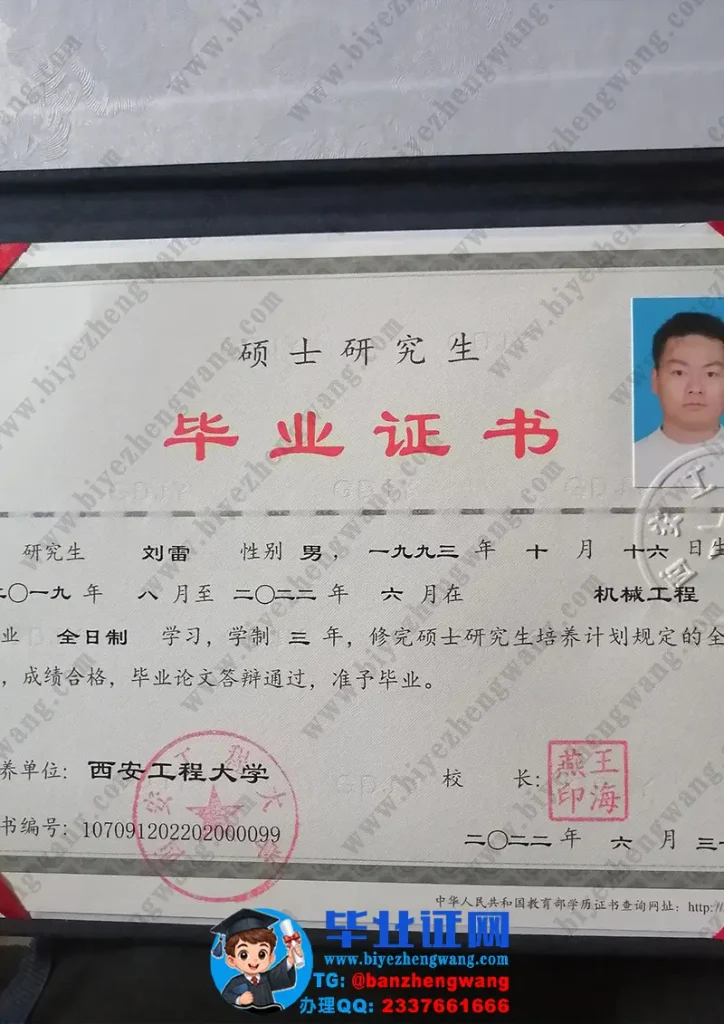 硕士研究生
毕业证书
研究生 刘雷 性别 男，一九九三 年 十 月 十六 日生
二〇一九 年 八 月至 二〇二二 年 六 月在 机械工程
业 全日制 学习，学制 三 年，修完硕士研究生培养计划规定的全
，成绩合格，毕业论文答辩通过，准予毕业。
养单位：西安工程大学
校 长：
王海燕印
书编号：107091202202000099
二〇二二 年 六 月 三十
中华人民共和国教育部学历证书查询网址：http:/
毕业证网
www.biyezhengwang.com
TG: @banzhengwang
办理QQ: 2337661666
www.biyezhengwang.com